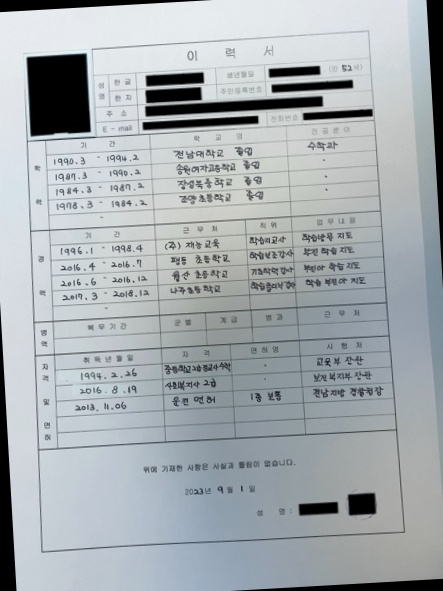 이 력 서
성 명 한 글 생년월일 (만 52세)
한 자 주민등록번호
주 소
E - mail 전화번호
학 력 기 간 학 교 명 전공분야
1990.3 - 1994.2 전남대학교 졸업 수학과
1987.3 - 1990.2 송원여자고등학교 졸업 -
1984.3 - 1987.2 장성북중학교 졸업 -
1978.3 - 1984.2 조양초등학교 졸업 -
-
경 력 기 간 근 무 처 직위 업무내용
1996.1 - 1998.4 (주) 재능교육 학습지교사 학습방문 지도
2016.4 - 2016.7 초등학교 학습보조강사 부진 학습 지도
2016.6 - 2016.12 초등학교 기초학력강사 부진아 학습 지도
2017.3 - 2018.12 나주초등학교 학습 부진아 지도
병 역 복무기간 군별 계급 병과 근 무 처
자 격 및 면 허 취득년월일 자 격 면허명 시 험 처
1994.2.26 중등학교2급정교사 수학 - 교육부 장관
2016.8.19 사회복지사 2급 - 보건복지부 장관
2013.11.06 운전 면허 1종 보통 전남지방 경찰청장
위에 기재한 사항은 사실과 틀림이 없습니다.
2023년 9 월 1 일
성 명 :